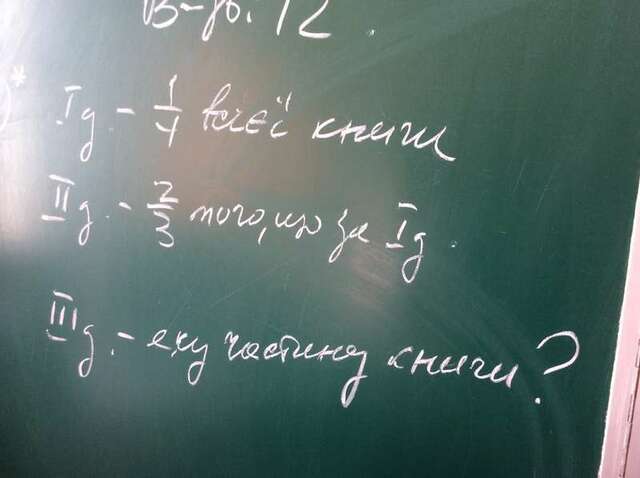 В-дь: 12.
)*
I д. - 1/4 всієї книги
II д. - 2/3 того, що за I д.
III д. - яку частину книги?